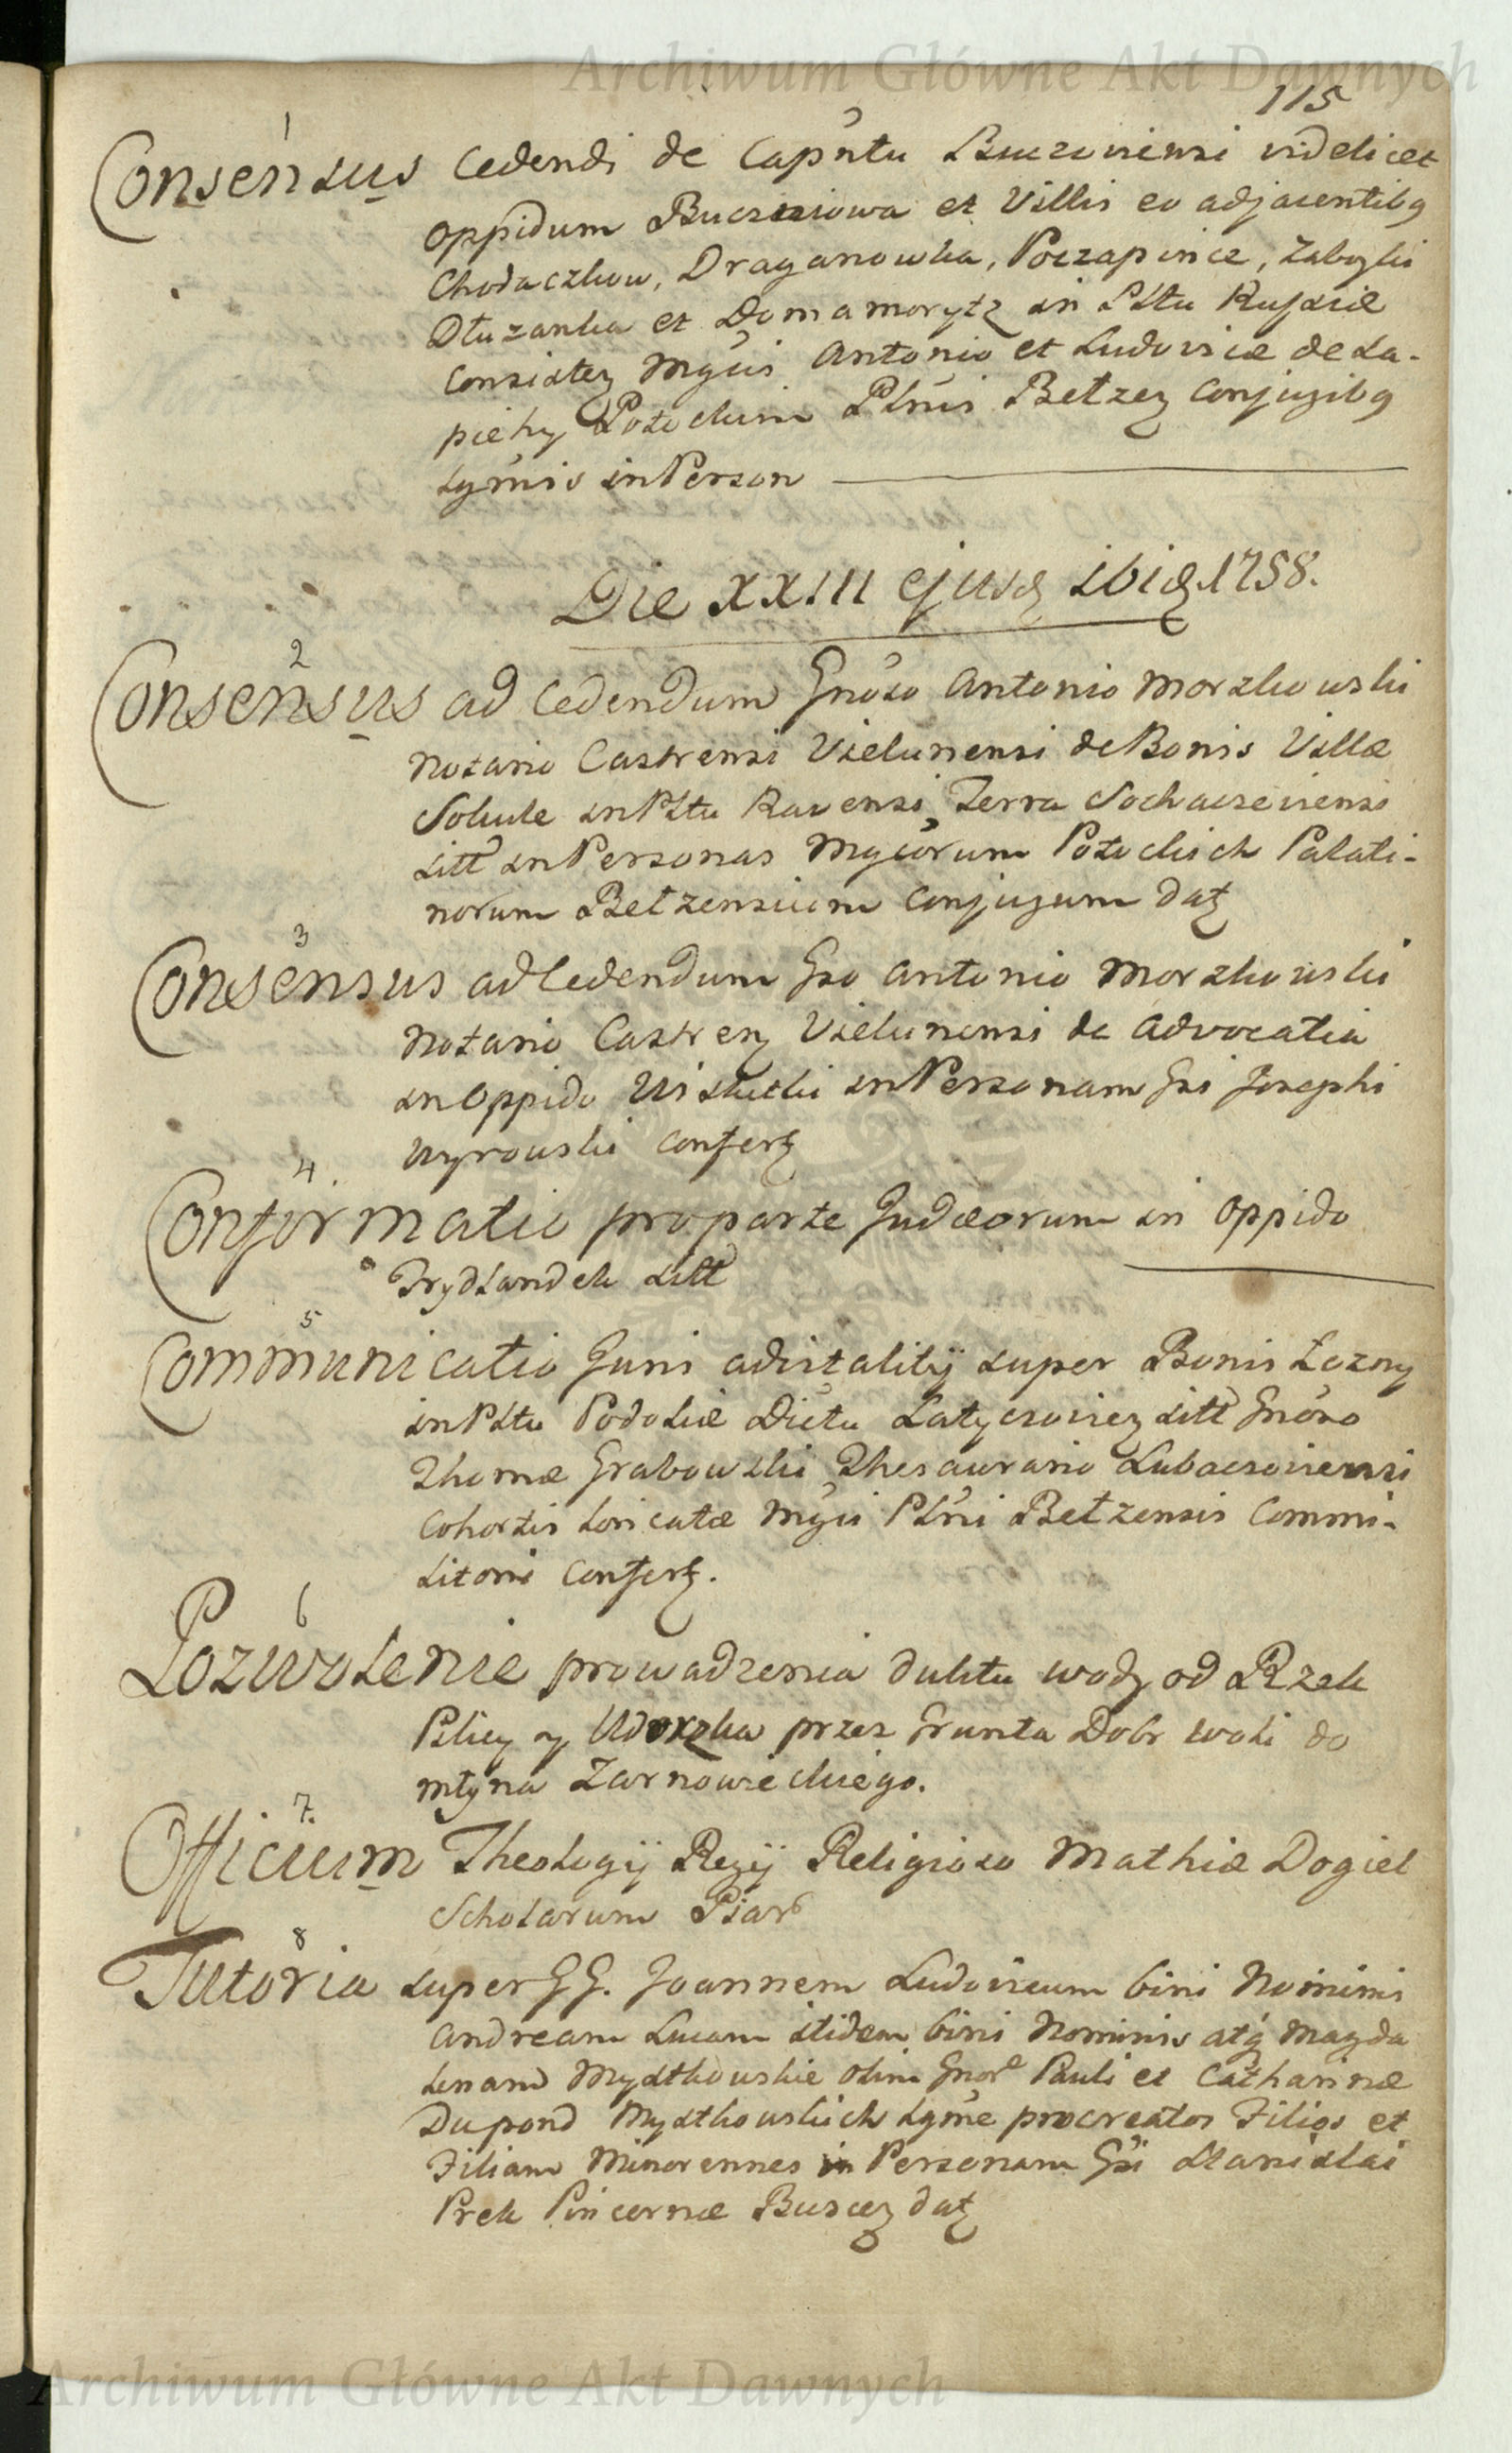 Archiwum Główne Akt Dawnych
115
1
Consensus Cedendi de Capntu Buczniensi videlicet
Oppidum Buczniowa et Villis eo adjacentibq
Chodaczkow, Draganowka, Poczapince, Zaboyki
Dłuzanka et Domamorytz in Pltu Russiæ
Consisteɳ Mgcis Antonio et Ludovicæ de Sa-
piehy Potockim Płnis Bełzeɳ Conjugibq
Sgmis in Person
Die XXIII ejusdɜ ibidɜ 1758.
2
Consensus ad Cedendum Gnoso Antonio Morzkowski
Notario Castrensi Vielunensi de Bonis Villæ
Sokule in Pltu Ravensi, Terra Sochaczeviensi
sitt in Personas Mgcorum Potockich Palati-
norum Bełzensium Conjugum datɜ
3
Consensus ad Cedendum Gso Antonio Morzkowski
Notario Castreɳ Vielunensi de Advocatia
in Oppido Wiskitki in Personam Gsi Josephi
Wyrowski Confertɜ
4.
Confirmatio pro parte Judæorum in Oppido
Frydlandek sitt
5
Communicatio Juris advitalitij super Bonis Łozny
in Pltu Podoliæ Distu Latyczovieɳ sitt Gnoso
Thomæ Grabowski Thesaurario Lubaczoviensi
Cohortis Loricatæ Mgci Płni Bełzensis Commi-
litoni Confertɜ.
6
Pozwolenie prowadzenia duktu wody od Rzek
Pilicy y Udorzka przez Grunta Dobr Woli do
młyna Zarnowieckiego.
7.
Officium Theologij Regij Religioso Mathiæ Dogiel
Scholarum Piar
8
Tutoria super GG. Joannem Ludovicum bini Nominis
Andream Lucam itidem bini Nominis atq Magda
lenam Mysthowskie olim Gnor Pauli et Catharinæ
Dupond Mysthowskich Sgme procreatos Filios et
Filiam Minorennes in Personam Gsi Stanislai
Prek Pincernæ Busceɳ datɜ
Archiwum Główne Akt Dawnych